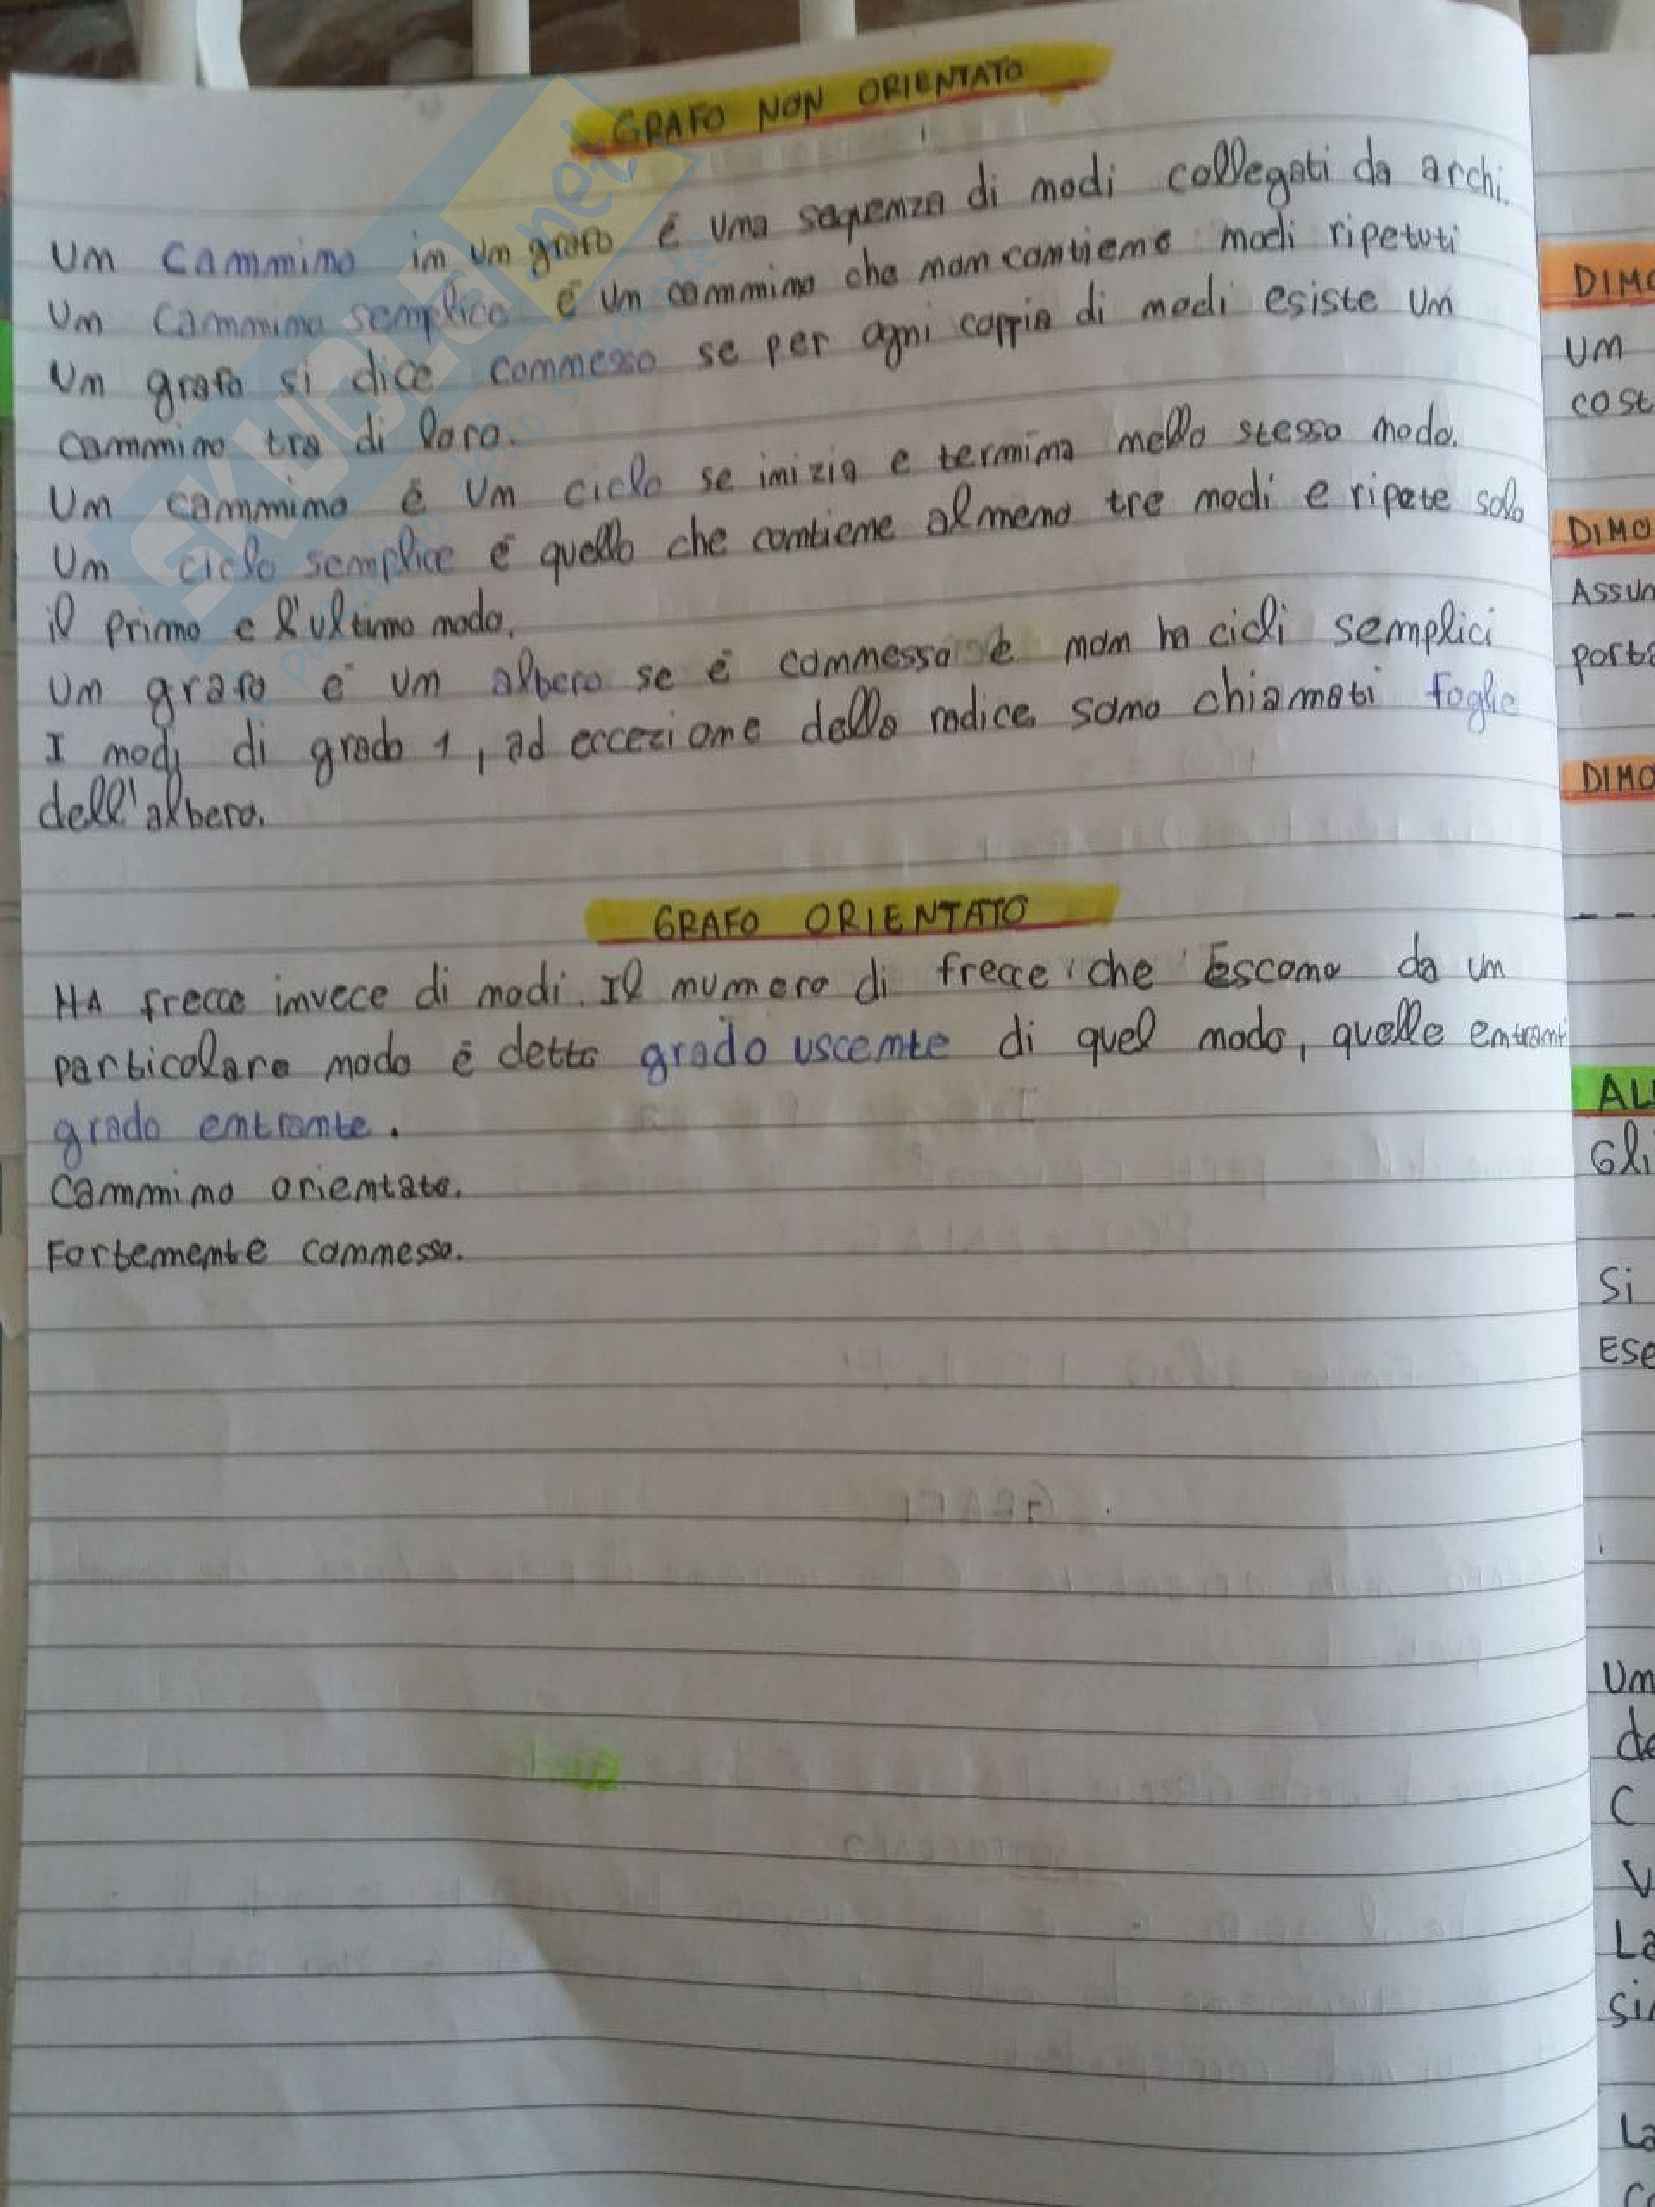 GRAFO NON ORIENTATO
Un cammino in un grafo è una sequenza di nodi collegati da archi.
Un cammino semplice è un cammino che non contiene nodi ripetuti
Un grafo si dice connesso se per ogni coppia di nodi esiste un
cammino tra di loro.
Un cammino è un ciclo se inizia e termina nello stesso nodo.
Un ciclo semplice è quello che contiene almeno tre nodi e ripete solo
il primo e l'ultimo nodo.
Un grafo è un albero se è connesso e non ha cicli semplici
I nodi di grado 1, ad eccezione della radice sono chiamati foglie
dell'albero.
GRAFO ORIENTATO
HA frecce invece di nodi. Il numero di frecce che Escono da un
particolare nodo è detto grado uscente di quel nodo, quelle entranti
grado entrante.
Cammino orientato.
Fortemente connesso.
DIMO
Un
cost
DIMO
Assun
porta
DIMO
AL
Gli
Si
Ese
Un
de
C
V
La
sin
La
SKUOLA.net